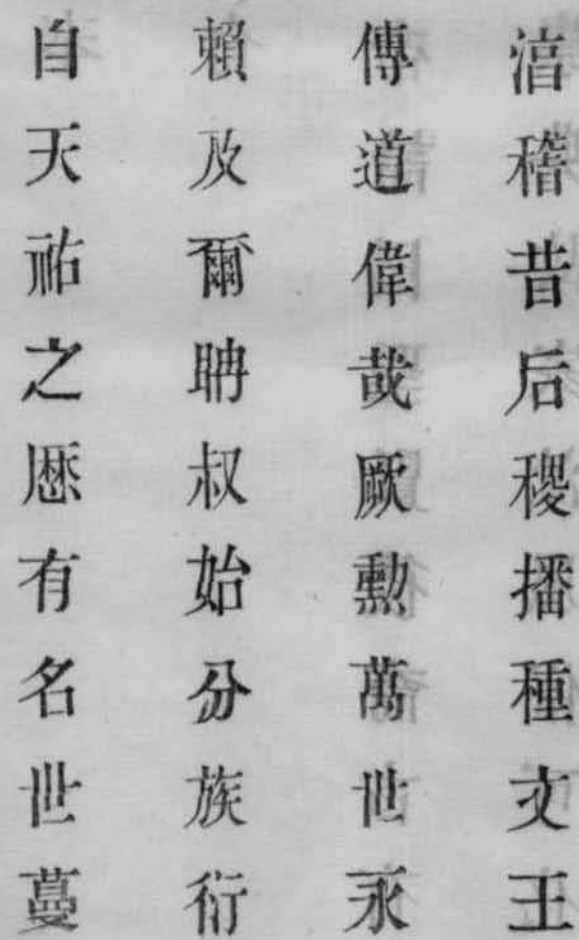 溍稽昔后稷播種文王
傳道偉哉厥勲萬世永
賴及爾聃叔始分族衍
自天祐之厯有名世蔓